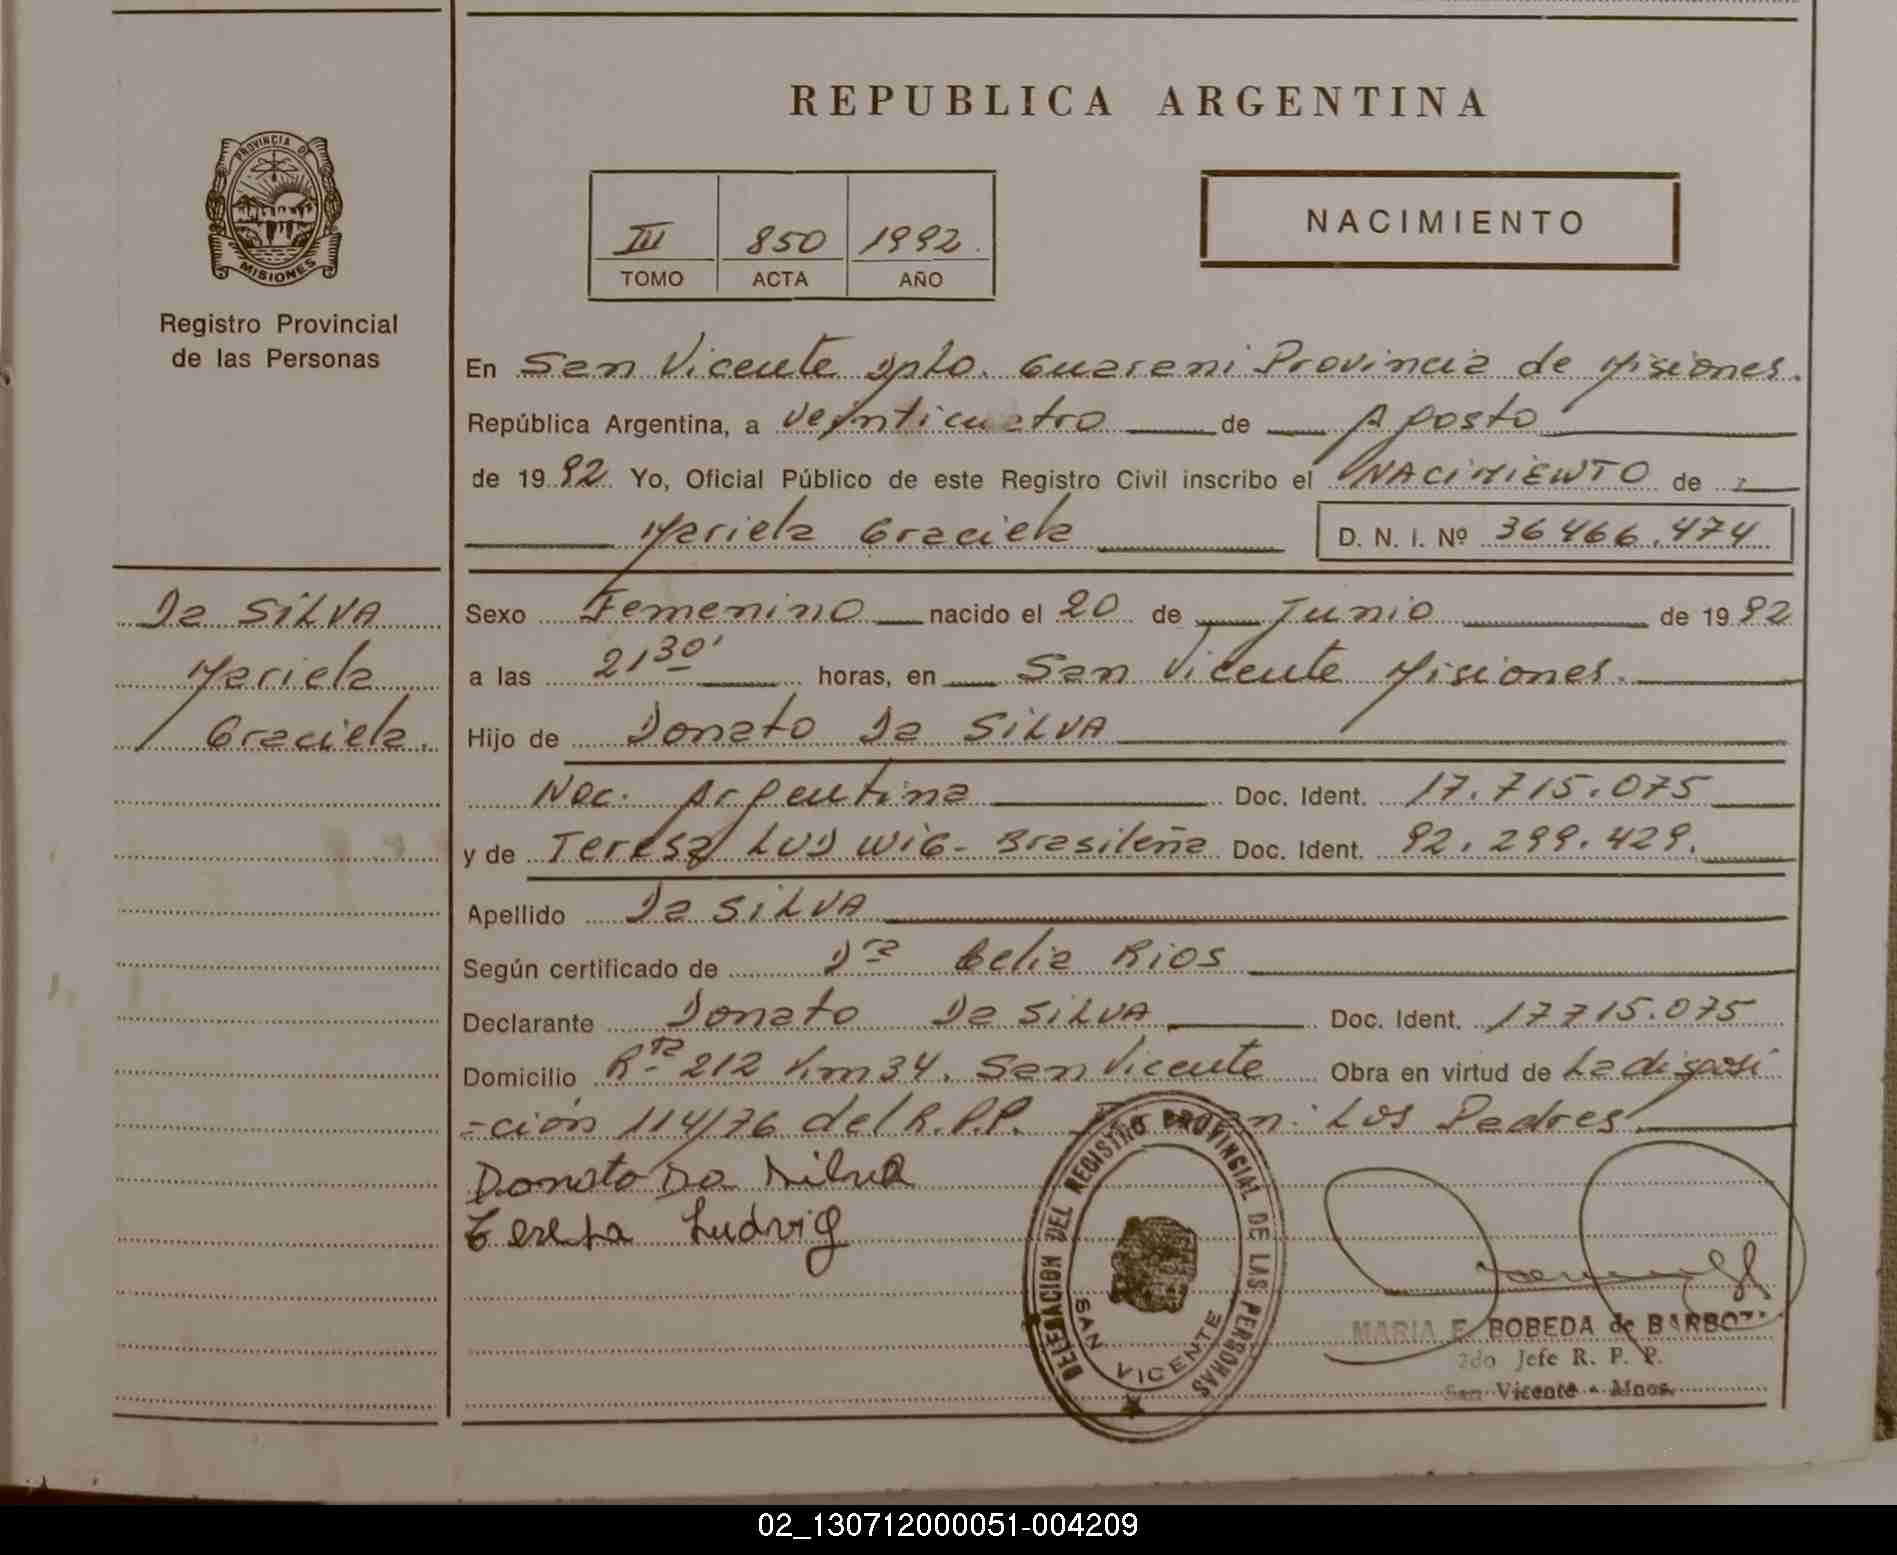 REPUBLICA ARGENTINA
PROVINCIA DE
MISIONES
Registro Provincial
de las Personas
III 850 1992.
TOMO ACTA AÑO
NACIMIENTO
En San Vicente Dpto. Guarani Provincia de Misiones.
República Argentina, a veinticuatro de Agosto
de 1992. Yo, Oficial Público de este Registro Civil inscribo el NACIMIENTO de :
Mariela Graciela D. N. I. Nº 36466.474
Da SILVA
Mariela
Graciela.
Sexo Femenino nacido el 20 de Junio de 1992
a las 21 30' horas, en San Vicente Misiones.
Hijo de Donato Da SILVA
Nac. Argentina Doc. Ident. 17.715.075
y de Teresa LUDWIG- Brasileña Doc. Ident. 92.299.429.
Apellido Da SILVA
Según certificado de Dra Celia Rios
Declarante Donato Da SILVA Doc. Ident. 17715.075
Domicilio Rta 212 Km34. San Vicente Obra en virtud de La disposi
-ción 114/76 del R.P.P. Los Padres
Donato Da Silva
Teresa Ludvig
DELEGACION DEL REGISTRO PROVINCIAL DE LAS PERSONAS
SAN VICENTE
MARIA E. BOBEDA de BARBOZA
2do Jefe R. P. P.
San Vicente - Mnes.
02_130712000051-004209